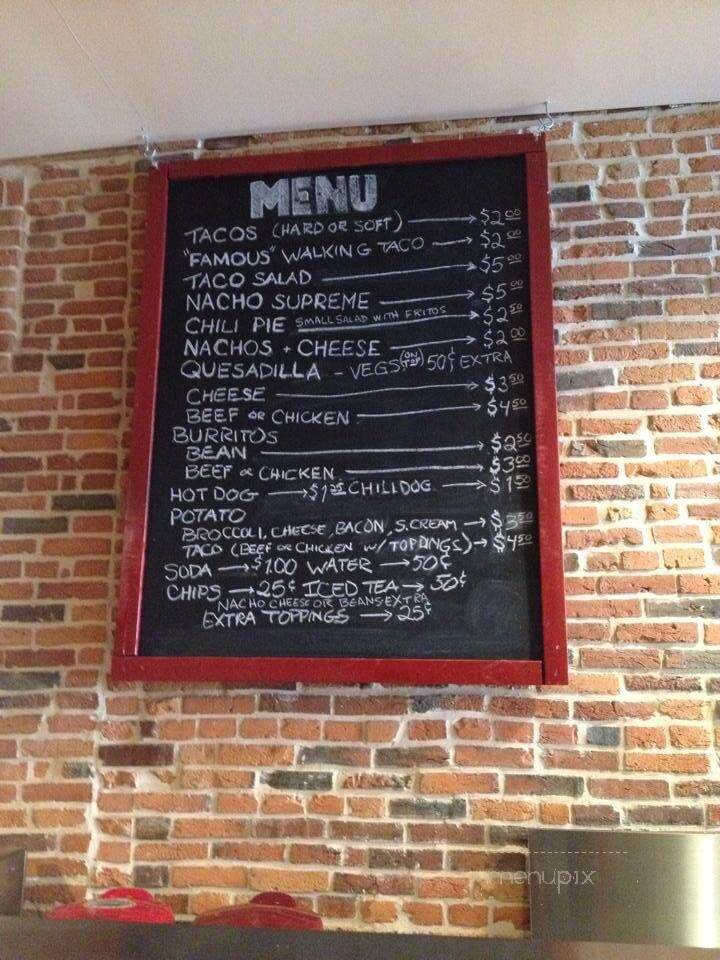 MENU
TACOS (HARD OR SOFT) → $2.00
"FAMOUS" WALKING TACO → $2.00
TACO SALAD → $5.00
NACHO SUPREME → $5.00
CHILI PIE SMALL SALAD WITH FRITOS → $2.50
NACHOS + CHEESE → $2.00
QUESADILLA - VEGS (ON TOP) 50¢ EXTRA
CHEESE → $3.50
BEEF OR CHICKEN → $4.50
BURRITOS
BEAN → $2.50
BEEF OR CHICKEN → $3.00
HOT DOG → $1.25 CHILI DOG → $1.50
POTATO
BROCCOLI, CHEESE, BACON, S. CREAM → $3.50
TACO (BEEF OR CHICKEN W/ TOPPINGS) → $4.50
SODA → $1.00 WATER → 50¢
CHIPS → 25¢ ICED TEA → 50¢
NACHO CHEESE OR BEANS-EXTRA
EXTRA TOPPINGS → 25¢
menupix